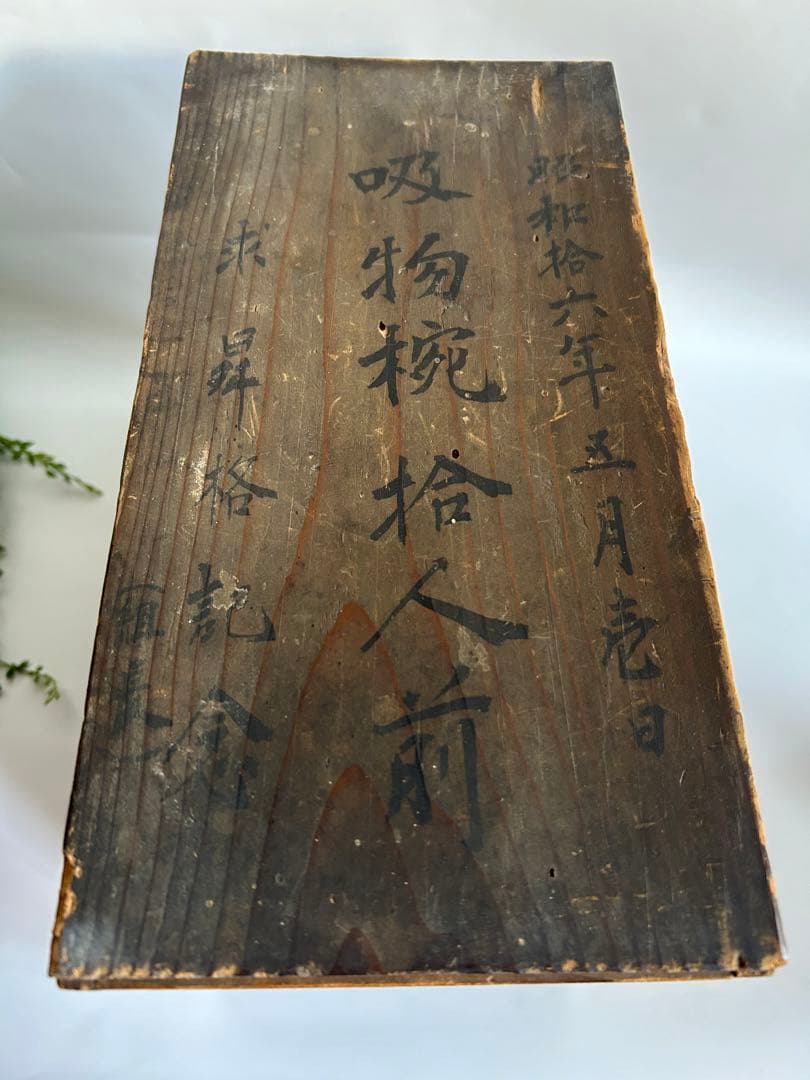 昭和拾六年五月壱日
吸物椀拾人前
求昇格記念